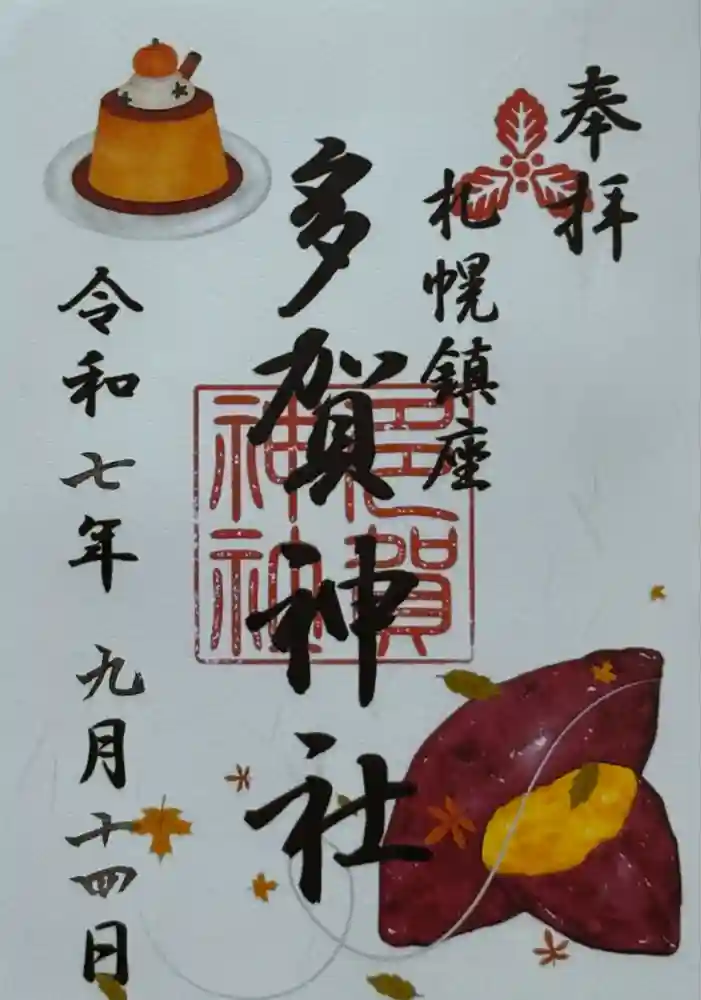 奉拝
札幌鎮座
多賀神社
多賀
神社
令和七年 九月十四日